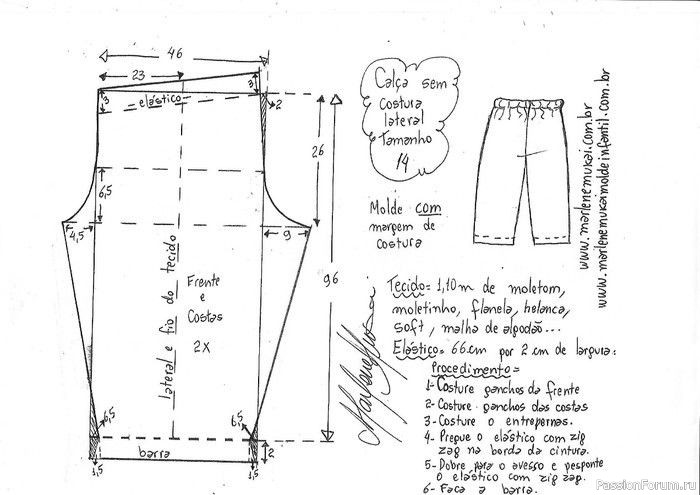 46
23
3
3
elástico
2
26
6,5
4,5
9
96
lateral e fio do tecido
Frente
e
Costas
2x
6,5
6,5
barra
2
1,5
1,5
Calça sem
costura
lateral
Tamanho
14
Molde com
margem de
costura
www.marlenemukai.com.br
www.marlenemukaimoldeinfantil.com.br
Tecido= 1,10m de moletom,
moletinho, flanela, helanca,
soft, malha de algodão...
Elástico= 66cm por 2 cm de largura:
Procedimento=
1- Costure ganchos da frente
2- Costure ganchos das costas
3- Costure o entrepernas.
4- Pregue o elástico com zig
zag na borda da cintura.
5- Dobre para o avesso e pesponte
o elástico com zig zag.
6- Faça a barra.
PassionForum.ru